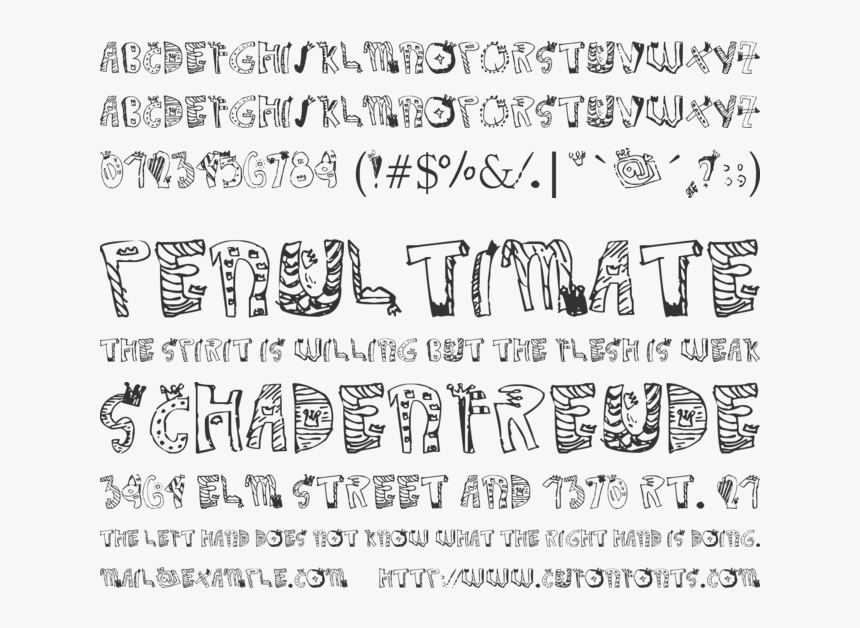 ABCDEFGHIJKLMNOPQRSTUVWXYZ
ABCDEFGHIJKLMNOPQRSTUVWXYZ
0123456789 (!#$%&/.|¨`@´,?:;)
PENULTIMATE
THE SPIRIT IS WILLING BUT THE FLESH IS WEAK
SCHADENFREUDE
3964 ELM STREET AND 1370 RT. 21
THE LEFT HAND DOES NOT KNOW WHAT THE RIGHT HAND IS DOING.
MAIL@EXAMPLE.COM HTTP://WWW.CUFONFONTS.COM